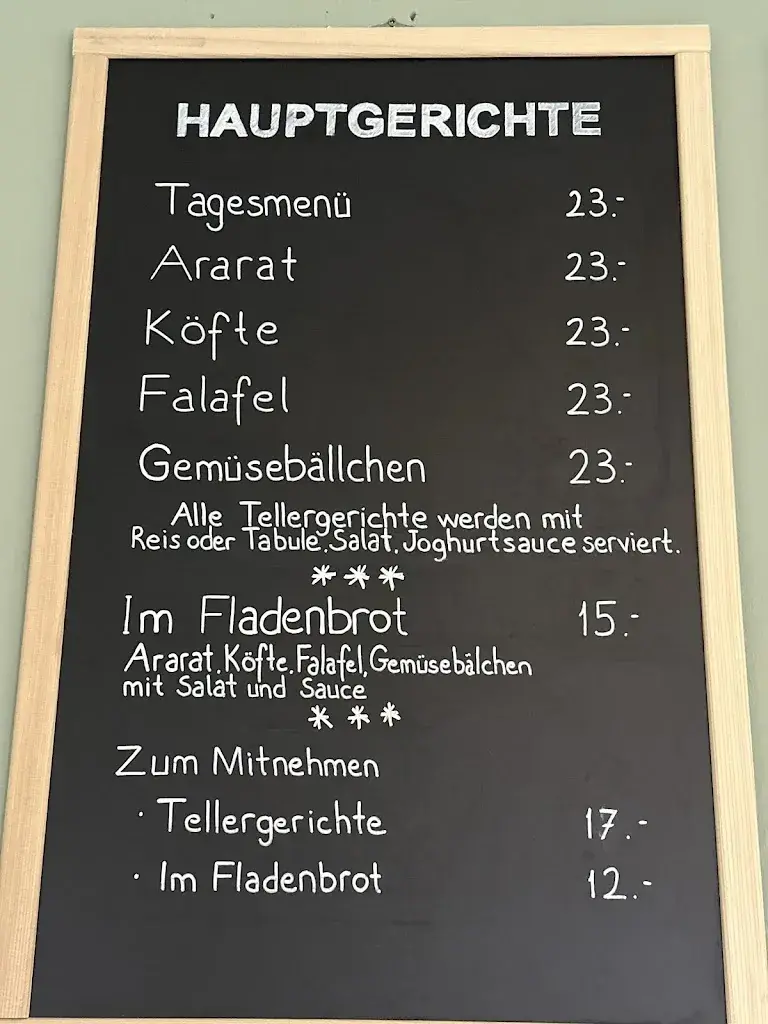 HAUPTGERICHTE
Tagesmenü 23.-
Ararat 23.-
Köfte 23.-
Falafel 23.-
Gemüsebällchen 23.-
Alle Tellergerichte werden mit
Reis oder Tabule, Salat, Joghurtsauce serviert.
***
Im Fladenbrot 15.-
Ararat, Köfte, Falafel, Gemüsebälchen
mit Salat und Sauce
***
Zum Mitnehmen
· Tellergerichte 17.-
· Im Fladenbrot 12.-